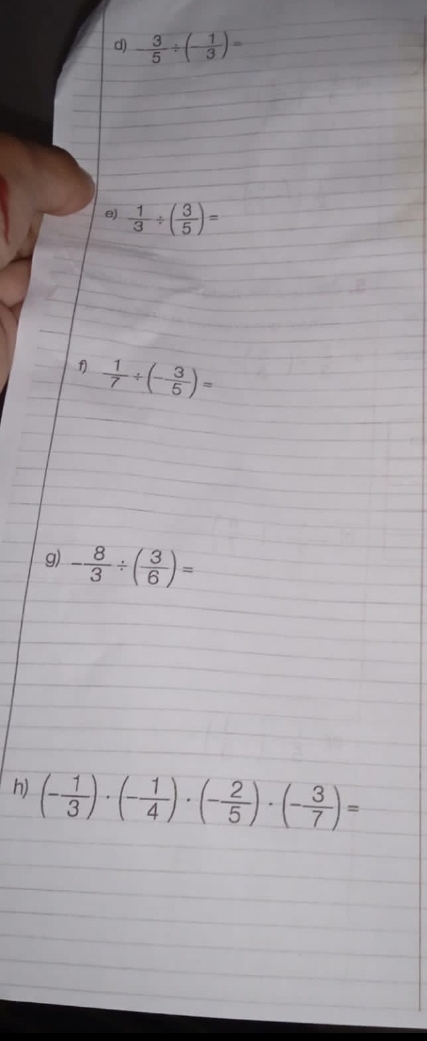 d) -3/5 ÷ (-1/3) =
e) 1/3 ÷ (3/5) =
f) 1/7 ÷ (-3/5) =
g) -8/3 ÷ (3/6) =
h) (-1/3) · (-1/4) · (-2/5) · (-3/7) =